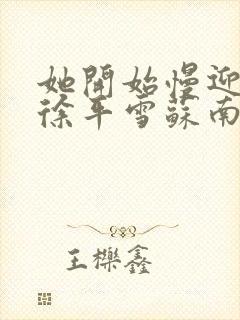 她開始慢迎
徐平雪蘇南
王櫟鑫